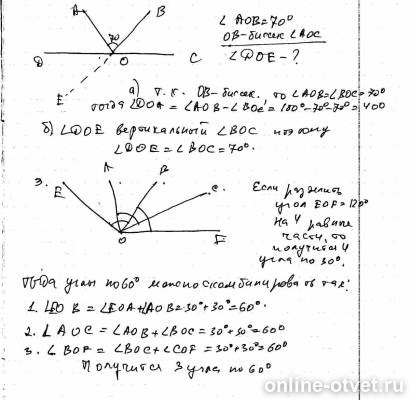 A 70 B
D O C
E
∠ AOB = 70°
OB - бисек. ∠AOC
∠DOE - ?
а) т.к. OB - бисек. то ∠AOB = ∠BOC = 70°
тогда ∠DOA = ∠AOB - ∠BOC = 180° - 70° - 70° = 40°
б) ∠DOE вертикальный ∠BOC поэтому
∠DOE = ∠BOC = 70°.
3. E A B C
O F
Если разделить
угол EOF = 120°
на 4 равные
части, то
получится 4
угла по 30°.
Тогда углы по 60° можно скомбинировать так:
1. ∠EOB = ∠EOA + ∠AOB = 30° + 30° = 60°.
2. ∠AOC = ∠AOB + ∠BOC = 30° + 30° = 60°
3. ∠BOF = ∠BOC + ∠COF = 30° + 30° = 60°
Получится 3 угла по 60°
online-otvet.ru